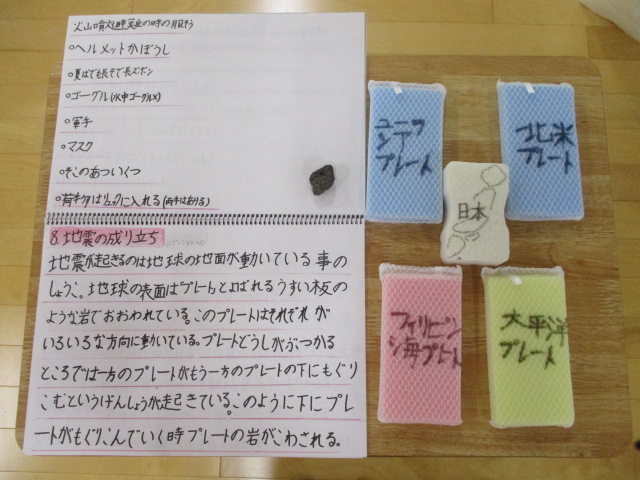 火山噴火避難の時の服そう
○ヘルメットかぼうし
○夏はでも長そで長ズボン
○ゴーグル(水中ゴーグル×)
○軍手
○マスク
○そこのあついくつ
○荷物はリュックに入れる(両手はあける)
8.地震の成り立ち
地震が起きるのは地球の地面が動いている事の
しょうこ。地球の表面はプレートとよばれるうすい板の
ような岩でおおわれている。このプレートはそれぞれが
いろいろな方向に動いている。プレートどうしがぶつかる
ところでは一方のプレートがもう一方のプレートの下にもぐり
こむというげんしょうが起きている。このように下にプレ
ートがもぐりこんでいく時プレートの岩がこわされる。
ユーラ
シア
プレート
北米
プレート
日本
フィリピン
海プレート
太平洋
プレート